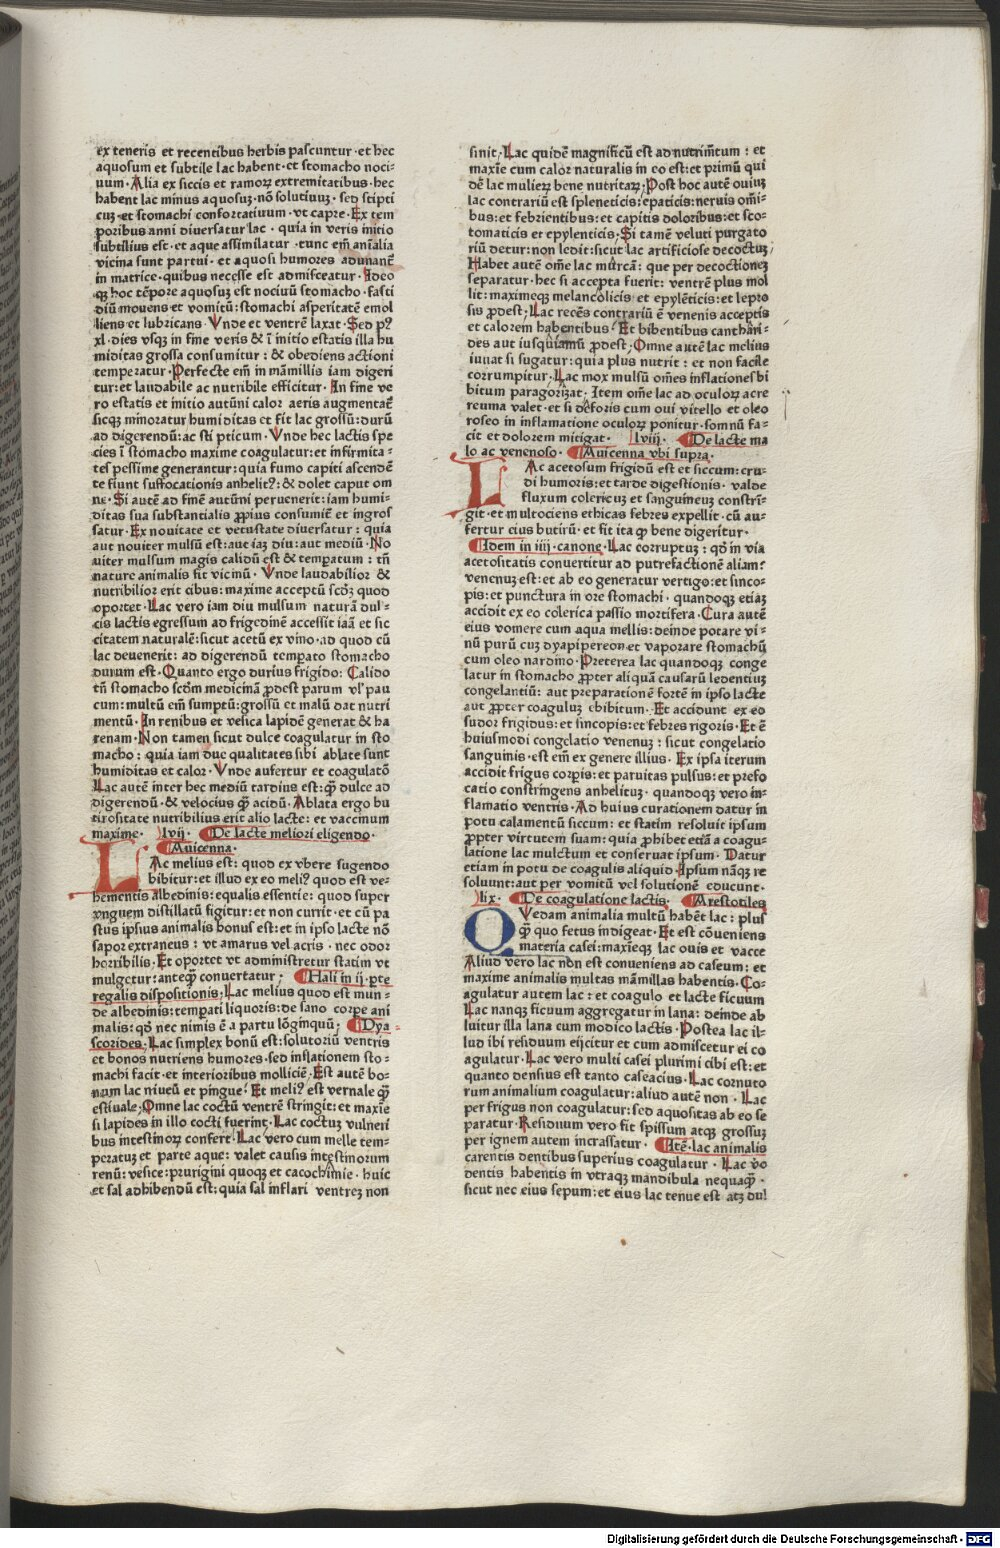 ex teneris et recentibus herbis pascuntur · et hec
aquosum et subtile lac habent · et stomacho noci⸗
uum · Alia ex siccis et ramoꝝ extremitatibus · hec
habent lac minus aquosuʒ · nō solutiuuʒ · sed stipti
cuʒ et stomachi confortatiuum · vt capre · Ex tem
poribus anni diuersatur lac · quia in veris initio
subtilius est · et aque assimilatur · tunc em̄ animalia
vicina sunt partui · et aquosi humores adunant᷑
in matrice · quibus necesse est admisceatur · Ideo
qʒ hoc tēpore aquosuʒ est nociuū stomacho · fasti
diū mouens et vomitū: stomachi asperitatē emol
liens et lubricans · Vnde et ventrē laxat · Sed pꝰ
xl · dies vsqʒ in fine veris & ī initio estatis illa hu
miditas grossa consumitur : & obediens actioni
temperatur · Perfecte em̄ in māmillis iam digeri
tur: et laudabile ac nutribile efficitur · In fine ve
ro estatis et initio autūni calor aeris augmentat᷑
sicqʒ minoratur humiditas et fit lac grossū: durū
ad digerendū: ac sti pticum · Vnde hec lactis spe
cies ī stomacho maxime coagulatur: et infirmita⸗
tes pessime generantur: quia fumo capiti ascendē
te fiunt suffocationis anhelitꝰ: & dolet caput om
ne · Si autē ad finē autūni peruenerit: iam humi⸗
ditas sua substantialis ꝓpius consumit᷑ et ingros
satur · Ex nouitate et vetustate diuersatur : quia
aut nouiter mulsū est: aut iaʒ diu: aut mediū · No
uiter mulsum magis calidū est & tempatum : tn̄
nature animalis fit vicinū · Vnde laudabilior &
nutribilior erit cibus: maxime acceptū scd̄ʒ quod
oportet · Lac vero iam diu mulsum naturā dul⸗
cis lactis egressum ad frigedinē accessit iaā et sic
citatem naturalē: sicut acetū ex vino · ad quod cū
lac deuenerit: ad digerendū tempato stomacho
durum est · Quanto ergo durius frigido: Calido
tn̄ stomacho scd̄m medicinā ꝓdest parum vl' pau
cum: multū em̄ sumptū: grossū et malū dat nutri
mentū · In renibus et vesica lapidē generat & ha
renam · Non tamen sicut dulce coagulatur in sto
macho : quia iam due qualitates sibi ablate sunt
humiditas et calor · Vnde aufertur et coagulatō
Lac autē inter hec mediū tardius est: qꝫ dulce ad
digerendū · & velocius qꝫ acidū · Ablata ergo bu
tirositate nutribilius erit alio lacte: et vaccinum
maxime · lvij · De lacte meliori eligendo ·
Auicenna ·
LAc melius est: quod ex vbere sugendo
bibitur: et illud ex eo meliꝰ quod est ve⸗
hementis albedinis: equalis essentie: quod super
vnguem distillatū figitur: et non currit · et cū pa
stus ipsius animalis bonus est: et in ipso lacte nō
sapor extraneus : vt amarus vel acris · nec odor
horribilis · Et oportet vt administretur statim vt
mulgetur: anteqꝫ conuertatur · Hali in ij · pte
regalis dispositionis · Lac melius quod est mun⸗
de albedinis: tempati liquoris: de sano corpe ani
malis: qd̄ nec nimis ē a partu lōginquū · Dya⸗
scorides · Lac simplex bonū est: solutoriū ventris
et bonos nutriens humores · sed inflationem sto⸗
machi facit · et interioribus molliciē · Est autē bo⸗
num lac niueū et pingue · Et meliꝰ est vernale qꝫ
estiuale · Omne lac coctū ventrē stringit: et maxīe
si lapides in illo cocti fuerint · Lac coctuʒ vulneri
bus intestinoꝝ confert · Lac vero cum melle tem⸗
peratuʒ et parte aque: valet causis intestinorum
renū: vesice: prurigini quoqʒ et cacochimie · huic
et sal adhibendū est: quia sal inflari ventreʒ non
sinit · Lac quidē magnificū est ad nutrimētum : et
maxīe cum calor naturalis in eo est: et primū qui
dē lac mulieꝝ bene nutritaꝝ · Post hoc autē ouiuʒ
lac contrariū est spleneticis: epaticis: neruis omī⸗
bus: et febrientibus: et capitis doloribus: et sco⸗
tomaticis et epylenticis · Si tamē veluti purgato
riū detur: non ledit: sicut lac artificiose decoctuʒ
Habet autē om̄e lac mūrcā : que per decoctioneʒ
separatur · hec si accepta fuerit: ventrē plus mol
lit: maximeqʒ melancolicis: et epylēticis: et lepro
sis ꝓdest · Lac recēs contrariū ē venenis acceptis
et calorem habentibus · Et bibentibus canthari⸗
des aut iusquiamū ꝓdest · Omne autē lac melius
iuuat si sugatur: quia plus nutrit : et non facile
corrumpitur · Lac mox mulsū om̄es inflationes bi
bitum paragorizat · Item om̄e lac ad oculoꝝ acre
reuma valet · et si deforis cum oui vitello et oleo
roseo in inflamatione oculoꝝ ponitur · somnū fa⸗
cit et dolorem mitigat · lviij · De lacte ma
lo ac venenoso · Auicenna vbi supra ·
LAc acetosum frigidū est et siccum: cru⸗
di humoris: et tarde digestionis · valde
fluxum colericuʒ et sanguineuʒ constrī⸗
git · et multociens ethicas febres expellit · cū au⸗
fertur eius butirū · et fit ita qꝫ bene digeritur ·
Idem in iiij · canone · Lac corruptuʒ : qd̄ in via
acetositatis conuertitur ad putrefactionē aliam:
venenuʒ est: et ab eo generatur vertigo: et sinco⸗
pis: et punctura in ore stomachi · quandoqʒ etiaʒ
accidit ex eo colerica passio mortifera · Cura autē
eius vomere cum aqua mellis: deinde potare vi⸗
nū purū cuʒ dyapipereon · et vaporare stomachū
cum oleo nardino · Preterea lac quandoqʒ conge
latur in stomacho ꝓpter aliquā causarū ledentiuʒ
congelantiū: aut preparationē fortē in ipso lacte
aut ꝓpter coaguluʒ ebibitum · Et accidunt ex eo
sudor frigidus: et sincopis: et febres rigoris · Et ē
huiusmodi congelatio venenuʒ : sicut congelatio
sanguinis · est em̄ ex genere illius · Ex ipsa iterum
accidit frigus corpis: et paruitas pulsus: et prefo
catio constringens anhelituʒ · quandoqʒ vero in⸗
flamatio ventris · Ad huius curationem datur in
potu calamentū siccum: et statim resoluit ipsum
ꝓpter virtutem suam: quia ꝓhibet etiā a coagu⸗
latione lac mulctum et conseruat ipsum · Datur
etiam in potu de coagulis aliquid · Ipsum nāqʒ re
soluunt: aut per vomitū vel solutionē educunt ·
lix · De coagulatione lactis · Arestotiles
QVedam animalia multū habēt lac : plus
qꝫ quo fetus indigeat · Et est cōueniens
materia casei: maxieqʒ lac ouis et vacce
Aliud vero lac non est conueniens ad caseum: et
maxime animalis multas māmillas habentis · Co⸗
agulatur autem lac : et coagulo et lacte ficuum
Lac nanqʒ ficuum aggregatur in lana: deinde ab
luitur illa lana cum modico lactis · Postea lac il⸗
lud ibi residuum eijcitur et cum admiscetur ei co
agulatur · Lac vero multi casei plurimi cibi est: et
quanto densius est tanto caseacius · Lac cornuto
rum animalium coagulatur: aliud autē non · Lac
per frigus non coagulatur: sed aquositas ab eo se
paratur · Residuum vero fit spissum atqʒ grossuʒ
per ignem autem incrassatur · Itē · lac animalis
carentis dentibus superius coagulatur · Lac vo
dentis habentis in vtraqʒ mandibula nequaqꝫ ·
sicut nec eius sepum: et eius lac tenue est atqʒ dul
Digitalisierung gefördert durch die Deutsche Forschungsgemeinschaft - DFG